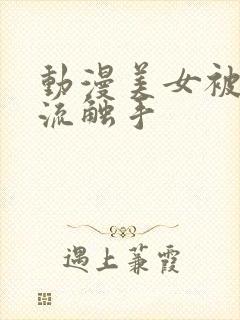 動漫美女被
流触手
遇上蒹霞